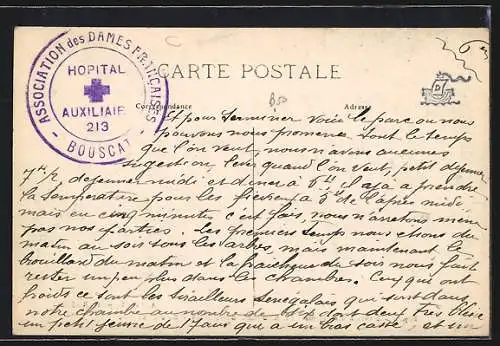 ASSOCIATION des DAMES FRANÇAISES
HOPITAL
AUXILIAIRE
213
BOUSCAT
CARTE POSTALE
Correspondance
Adresse
Et pour terminer voici le parc ou nous
pouvons nous promener tout le temps
que l'on veut, nous n'avons aucunes
l'on quand l'on veut, petit déjeuner
7h ½, dejeuner midi et diner a 6h il a a prendre
la température pour les fievreux a 5h de l'après midi
mais en cinq minutes c'est fait, nous n'arretons meme
pas nos parties. Les premiers temps nous etions du
matin au soir sous les arbres, mais maintenant le
brouillard du matin et la fraicheur du soir nous font
rester un peu plus dans les chambres. Ceux qui ont
froids ce sont les tirailleurs Senegalais qui sont dans
notre chambre au nombre de dont deux très
un petit jeune de 17 ans qui a un bras cassé, et un